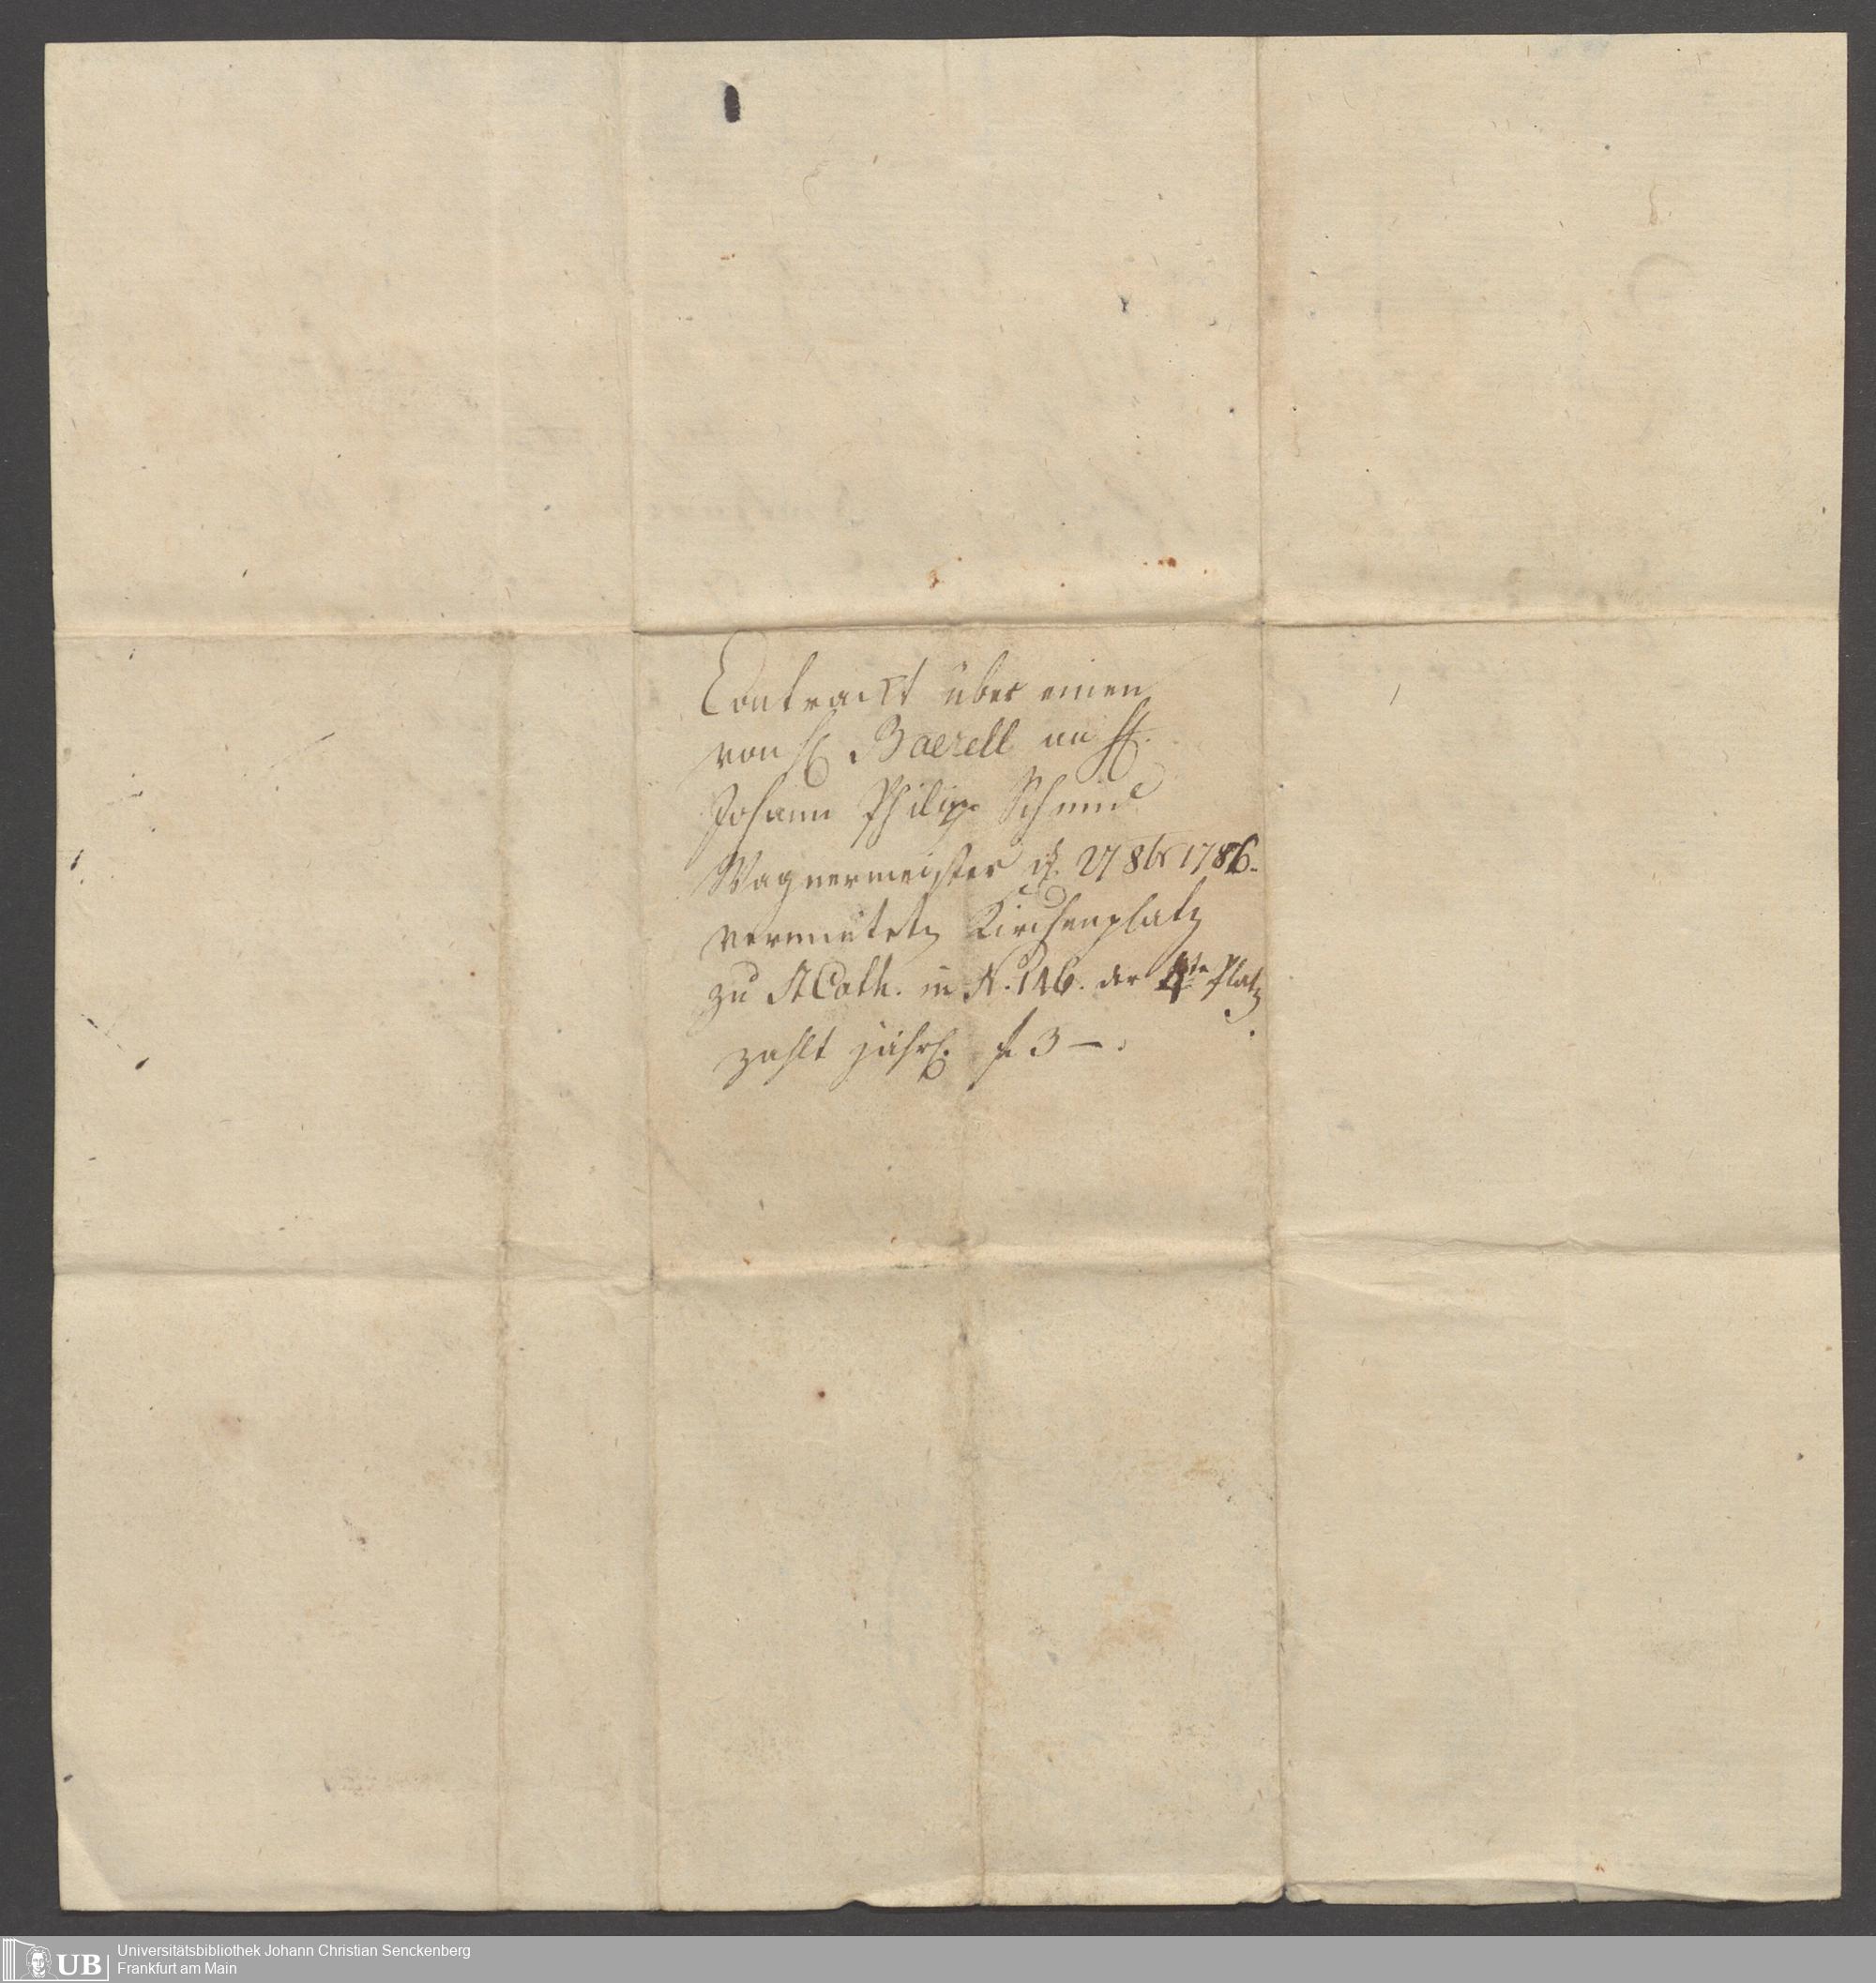 Contrackt über einen
von H. Baerell an H.
Johann Philipp Schmid
Wagnermeister d. 27 8br 1786.
vermieteten Kirchenplatz
zu St Cath. in N. 146. der 4te Platz
zahlt jährl. f 3 —.
UB
Universitätsbibliothek Johann Christian Senckenberg
Frankfurt am Main